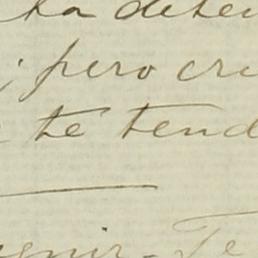 ha deten
; pero cre
te tend
venir - Te